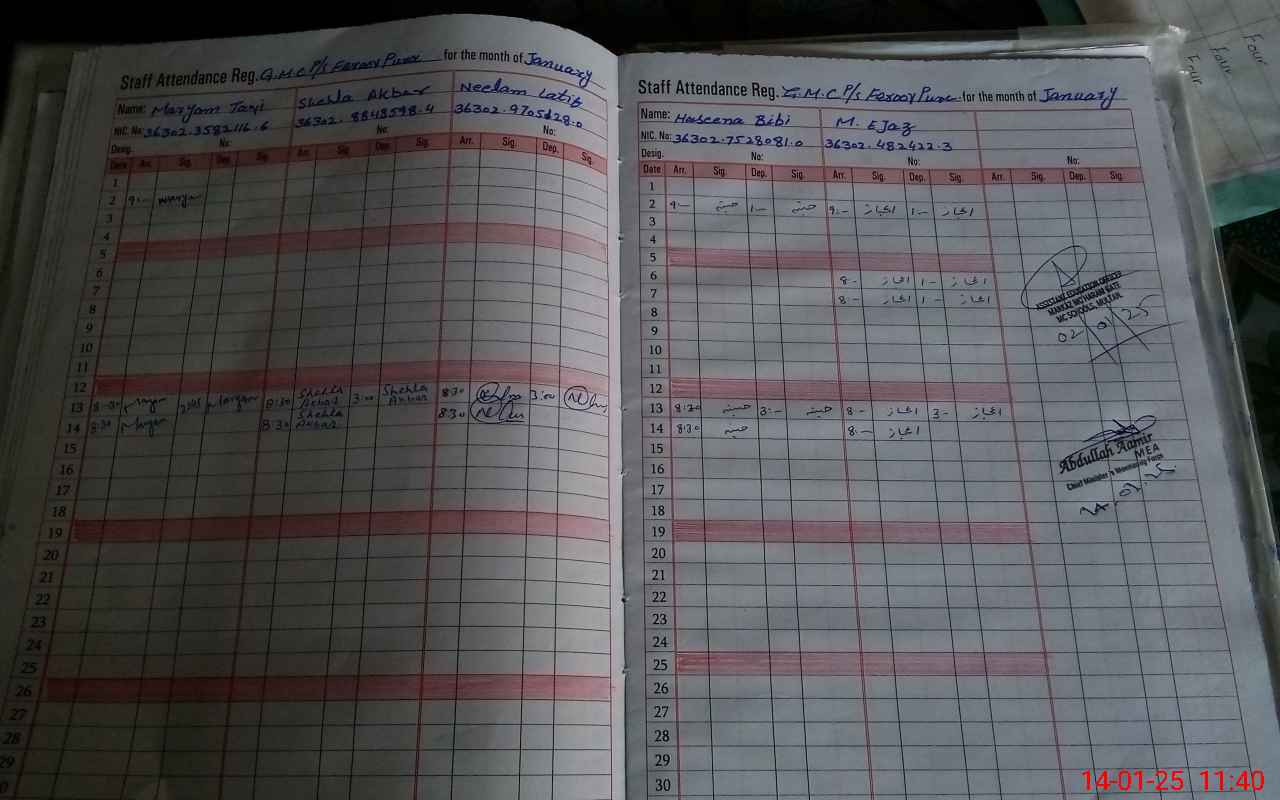 Staff Attendance Reg. G.M.C P/s Farooq Pura for the month of January
Name: Maryam Tayi Shehla Akbar Neelam Latif
NIC. No: 36302.3582116.6 36302.8848598.4 36302.9705128.0
Desig. No: No: No:
Date Arr. Sig. Dep. Sig. Arr. Sig. Dep. Sig. Arr. Sig. Dep. Sig.
1
2 9:-
3
4
5
6
7
8
9
10
11
12
13 8:30 Maryam Maryam 8:30 Shehla Akbar 3:00 Shehla Akbar 8:30 3:00
14 8:30 Maryam 8:30 Shehla Akbar 8:30
15
16
17
18
19
20
21
22
23
24
25
26
27
28
29
Staff Attendance Reg. G.M.C P/s Farooq Pura for the month of January
Name: Haseena Bibi M. EJaz
NIC. No: 36302.7528081.0 36302.482422.3
Desig. No: No: No:
Date Arr. Sig. Dep. Sig. Arr. Sig. Dep. Sig. Arr. Sig. Dep. Sig.
1
2 9:- حسینہ 1:- حسینہ 9:- اعجاز 1:- اعجاز
3
4
5
6 8:- اعجاز 1:- اعجاز
7 8:- اعجاز 1:- اعجاز
8
9
10
11
12
13 8:30 حسینہ 3:- حسینہ 8:- اعجاز 3:- اعجاز
14 8:30 حسینہ 8:- اعجاز
15
16
17
18
19
20
21
22
23
24
25
26
27
28
29
30
ASSISTANT EDUCATION OFFICER
MC SCHOOLS, MULTAN
02 01 25
Abdullah Aamir
MEA
Chief Minister's Monitoring Force
Four
Four
Four
14-01-25 11:40